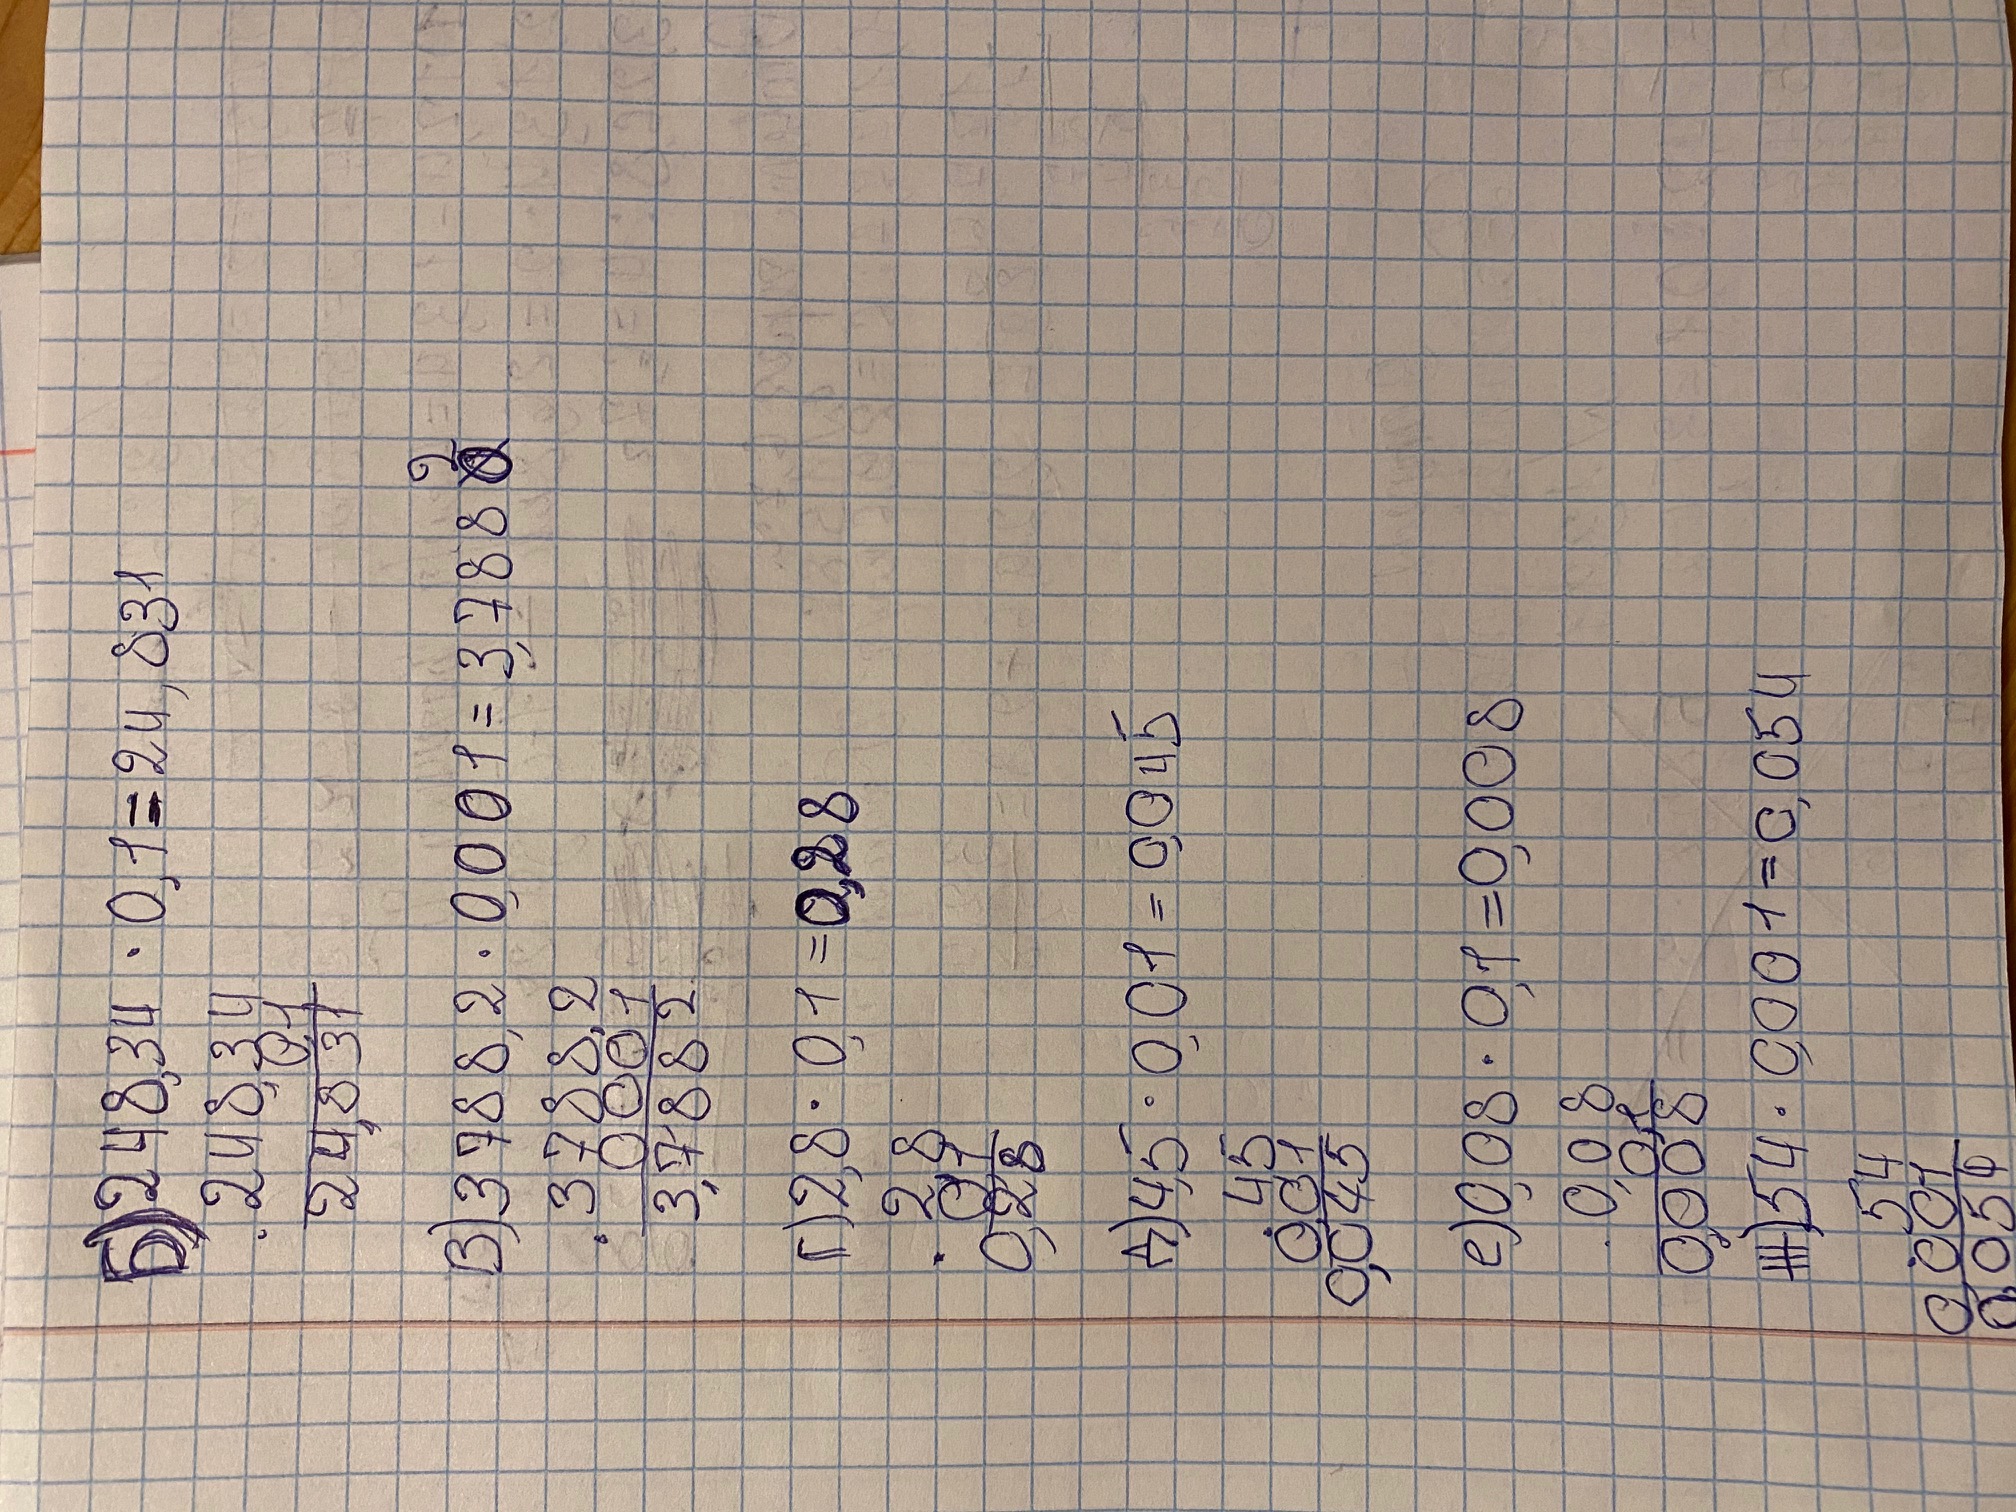 Б) 248,34 · 0,1 = 24,831
· 248,34
0,1
24,831
В) 3788,2 · 0,001 = 3,7882
· 3788,2
0001
3,7882
Г) 2,8 · 0,1 = 0,28
· 2,8
0,1
0,28
Д) 4,5 · 0,01 = 0,045
4,5
· 0,01
0,045
е) 0,08 · 0,1 = 0,008
· 0,08
0,1
0,008
Ж) 54 · 0,001 = 0,054
54
· 0,001
0,054